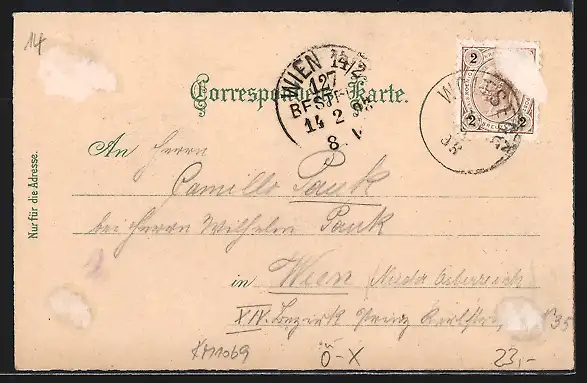 14
Correspondenz-Karte.
WIEN 14/2
127
BESTELLT
14 2 98
8 V
2 2
2 2
Nur für die Adresse.
An Herrn
Camillo Pauk
bei Herrn Wilhelm Pauk
in Wien (Nieder Oesterreich
XIV. Bezirk 35
XM1069
Ö-X
23,-